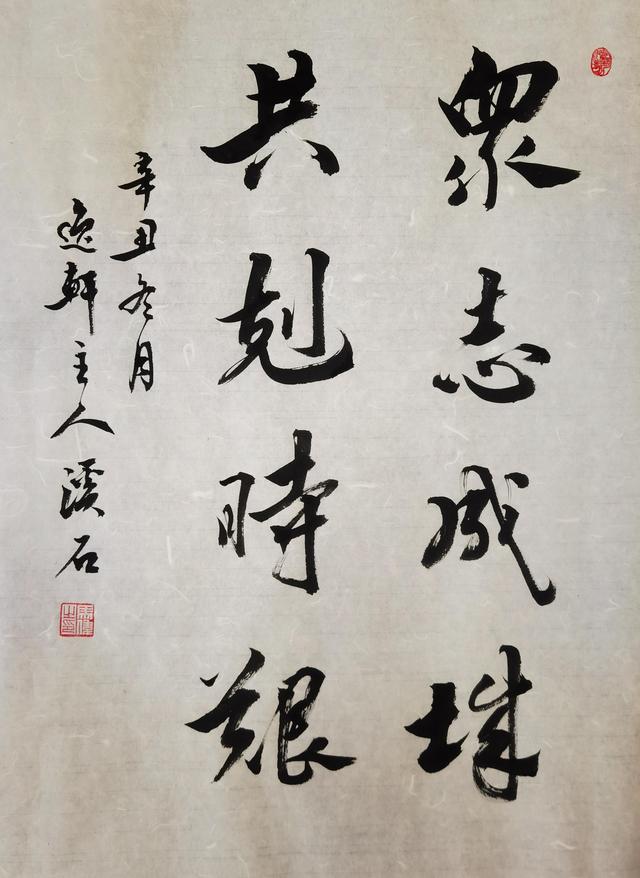 眾志成城
共剋時艱
辛丑冬月
逸軒主人溪石